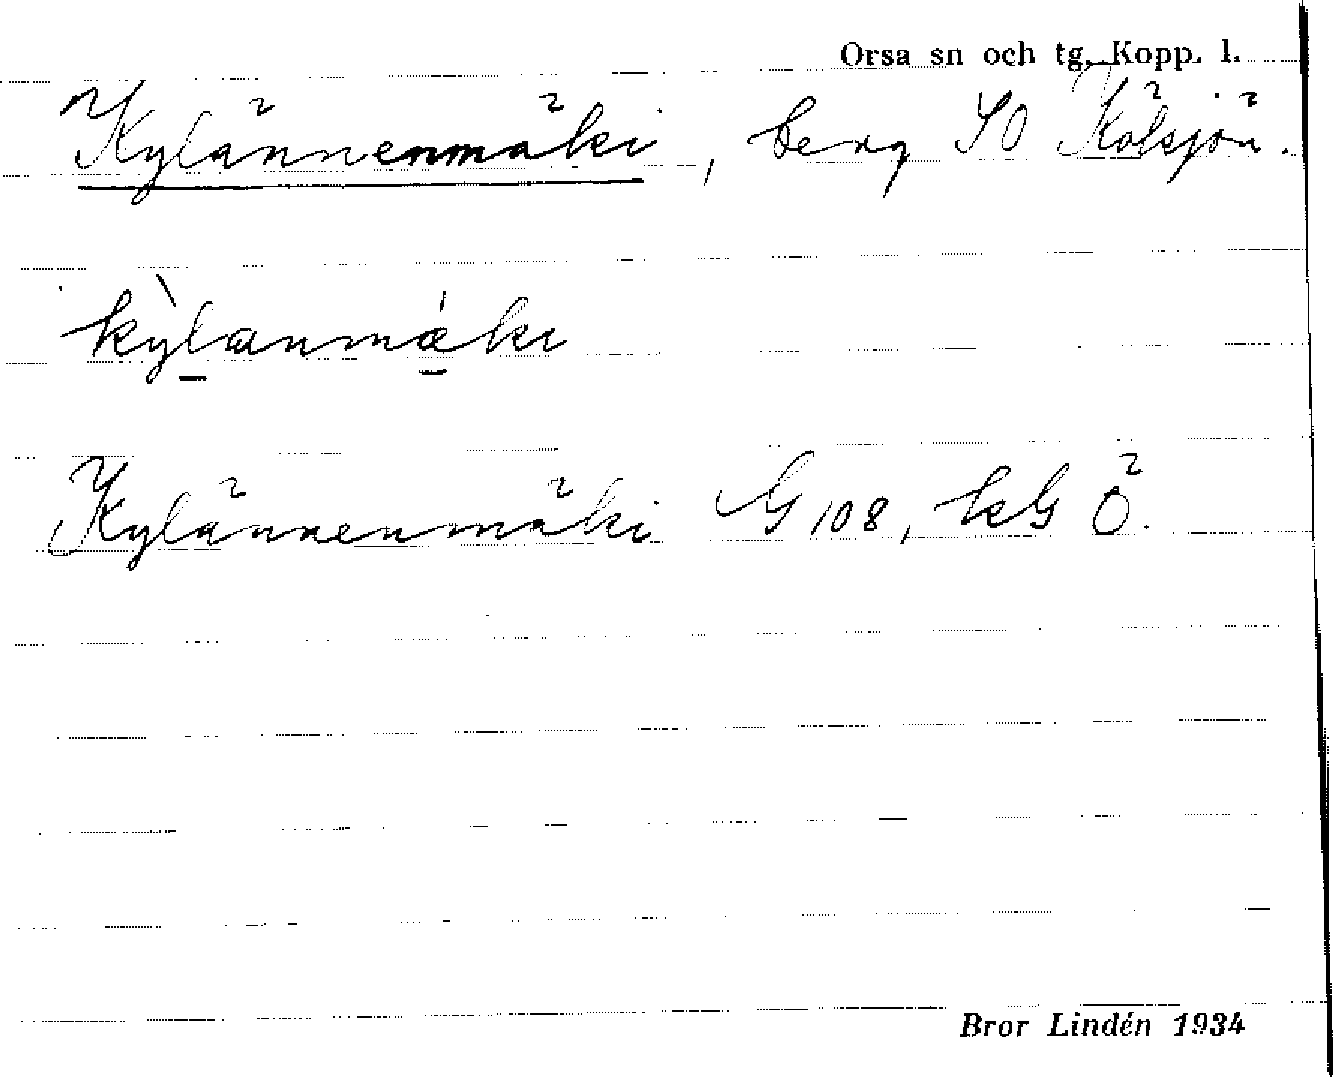 Orsa sn och tg. Kopp. l.
Kylännenmäki, berg SO Kölsjön.
kỳlænmǽki
Kylännenmäki G 108, kG Ö.
Bror Lindén 1934